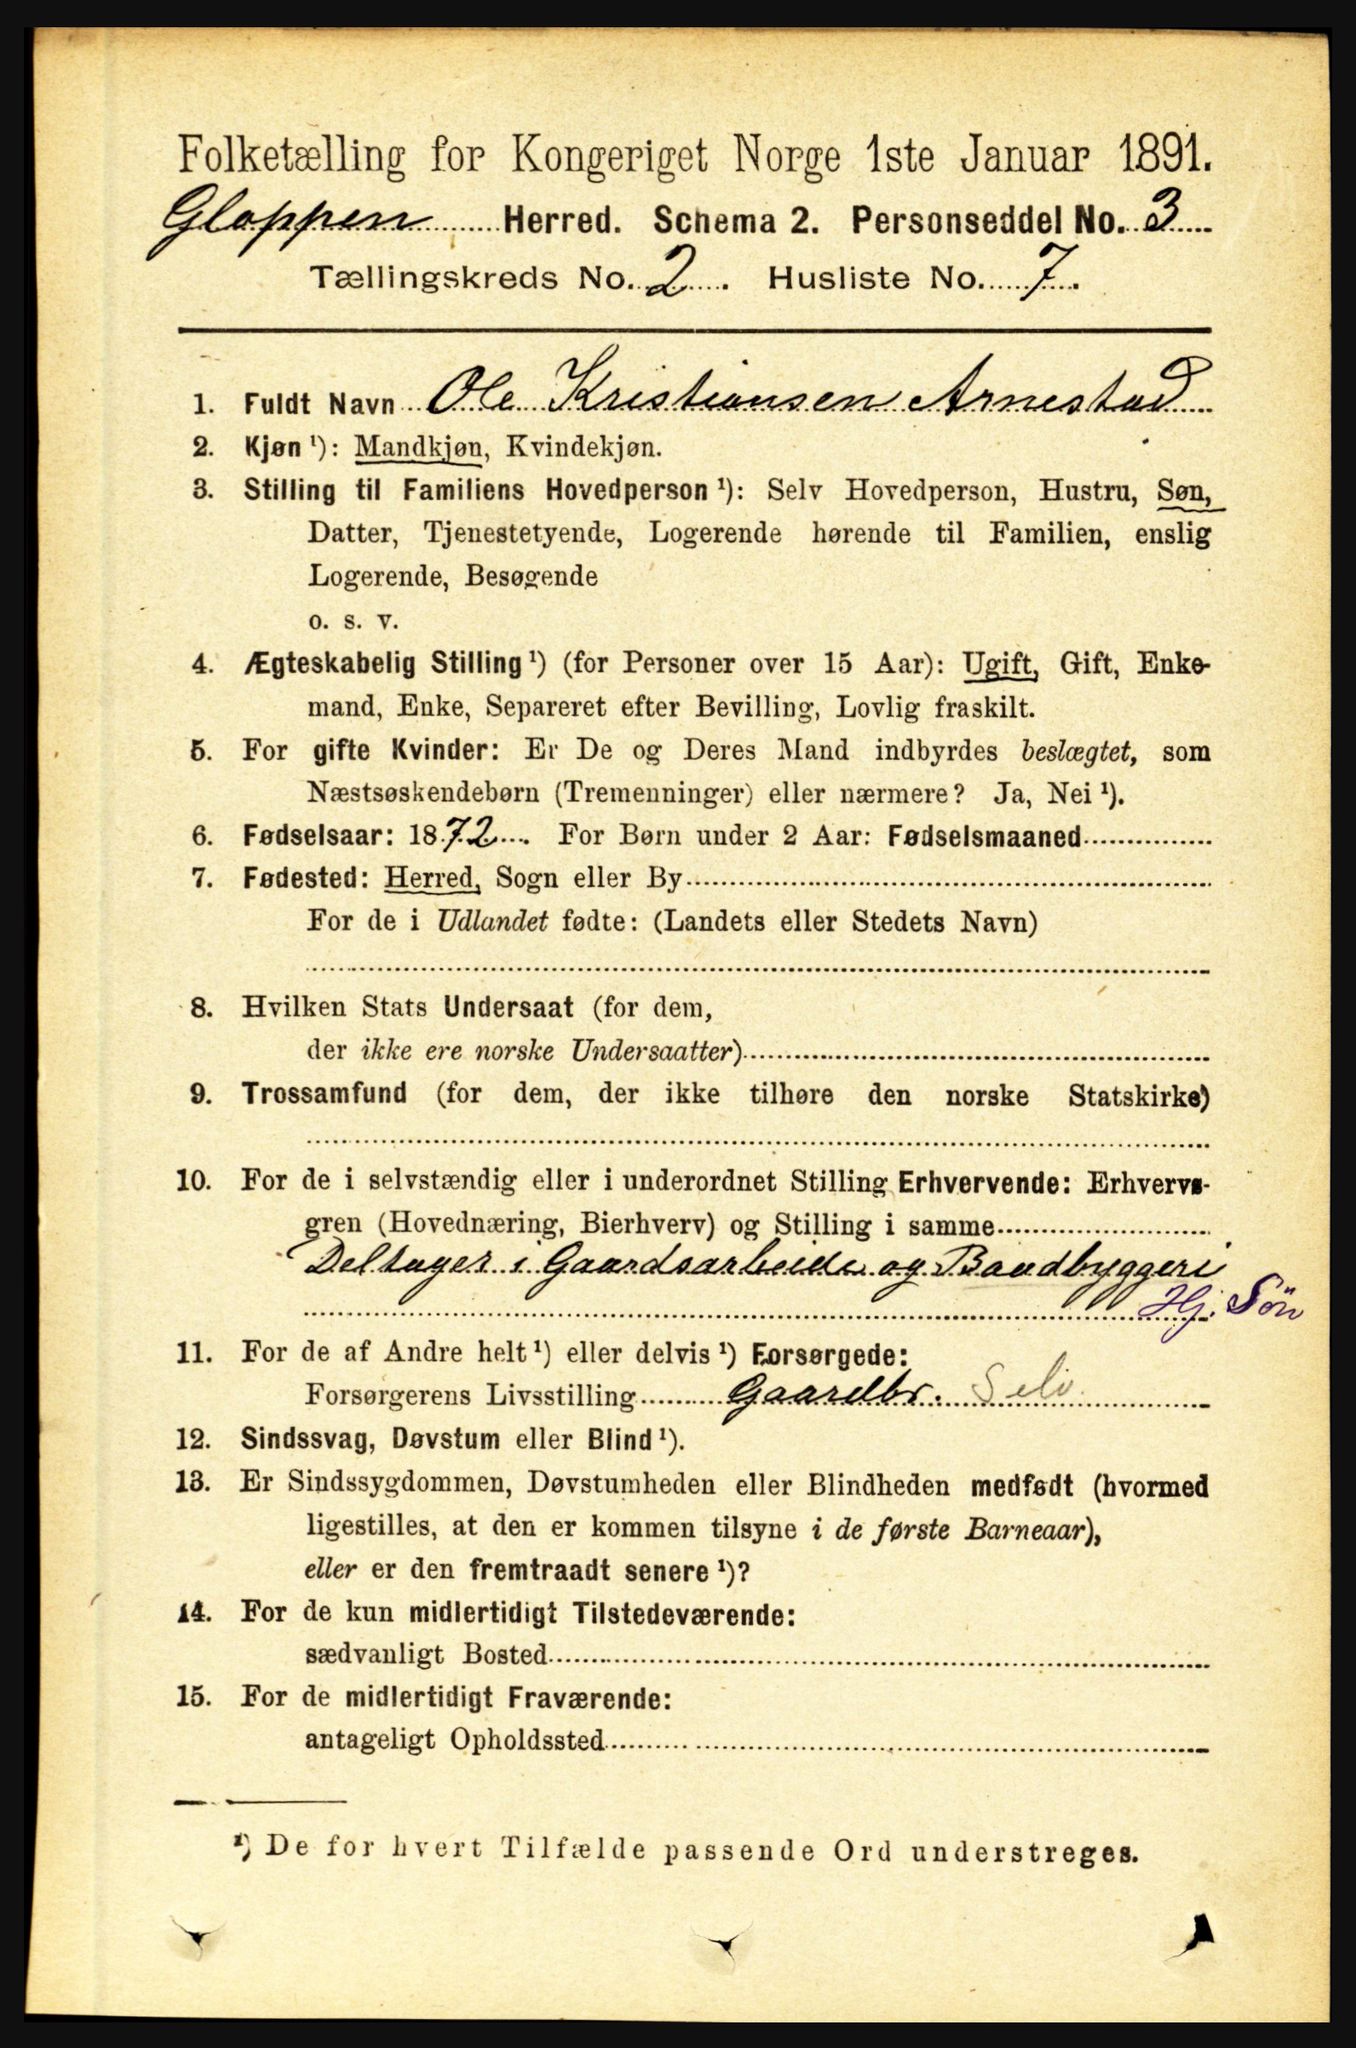 Folketælling for Kongeriget Norge 1ste Januar 1891.
Gloppen Herred. Schema 2. Personseddel No. 3
Tællingskreds No. 2. Husliste No. 7.
1. Fuldt Navn Ole Kristiansen Arnestad
2. Kjøn ¹): Mandkjøn, Kvindekjøn.
3. Stilling til Familiens Hovedperson ¹): Selv Hovedperson, Hustru, Søn,
Datter, Tjenestetyende, Logerende hørende til Familien, enslig
Logerende, Besøgende
o. s. v.
4. Ægteskabelig Stilling ¹) (for Personer over 15 Aar): Ugift, Gift, Enke-
mand, Enke, Separeret efter Bevilling, Lovlig fraskilt.
5. For gifte Kvinder: Er De og Deres Mand indbyrdes beslægtet, som
Næstsøskendebørn (Tremenninger) eller nærmere? Ja, Nei ¹).
6. Fødselsaar: 1872. For Børn under 2 Aar: Fødselsmaaned
7. Fødested: Herred, Sogn eller By
For de i Udlandet fødte: (Landets eller Stedets Navn)
8. Hvilken Stats Undersaat (for dem,
der ikke ere norske Undersaatter)
9. Trossamfund (for dem, der ikke tilhøre den norske Statskirke)
10. For de i selvstændig eller i underordnet Stilling Erhvervende: Erhvervs-
gren (Hovednæring, Bierhverv) og Stilling i samme
Deltager i Gaardsarbeide og Baadbyggeri
Hj. Søn
11. For de af Andre helt ¹) eller delvis ¹) Forsørgede:
Forsørgerens Livsstilling Gaardbr. Selv
12. Sindssvag, Døvstum eller Blind ¹).
13. Er Sindssygdommen, Døvstumheden eller Blindheden medfødt (hvormed
ligestilles, at den er kommen tilsyne i de første Barneaar),
eller er den fremtraadt senere ¹)?
14. For de kun midlertidigt Tilstedeværende:
sædvanligt Bosted
15. For de midlertidigt Fraværende:
antageligt Opholdssted
¹) De for hvert Tilfælde passende Ord understreges.